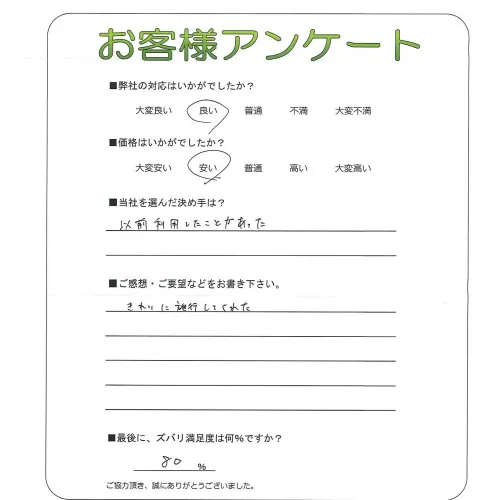 お客様アンケート
■弊社の対応はいかがでしたか?
大変良い 良い 普通 不満 大変不満
■価格はいかがでしたか?
大変安い 安い 普通 高い 大変高い
■当社を選んだ決め手は?
以前利用したことがあった
■ご感想・ご要望などをお書き下さい。
きれいに施行してくれた
■最後に、ズバリ満足度は何%ですか?
80 %
ご協力頂き、誠にありがとうございました。